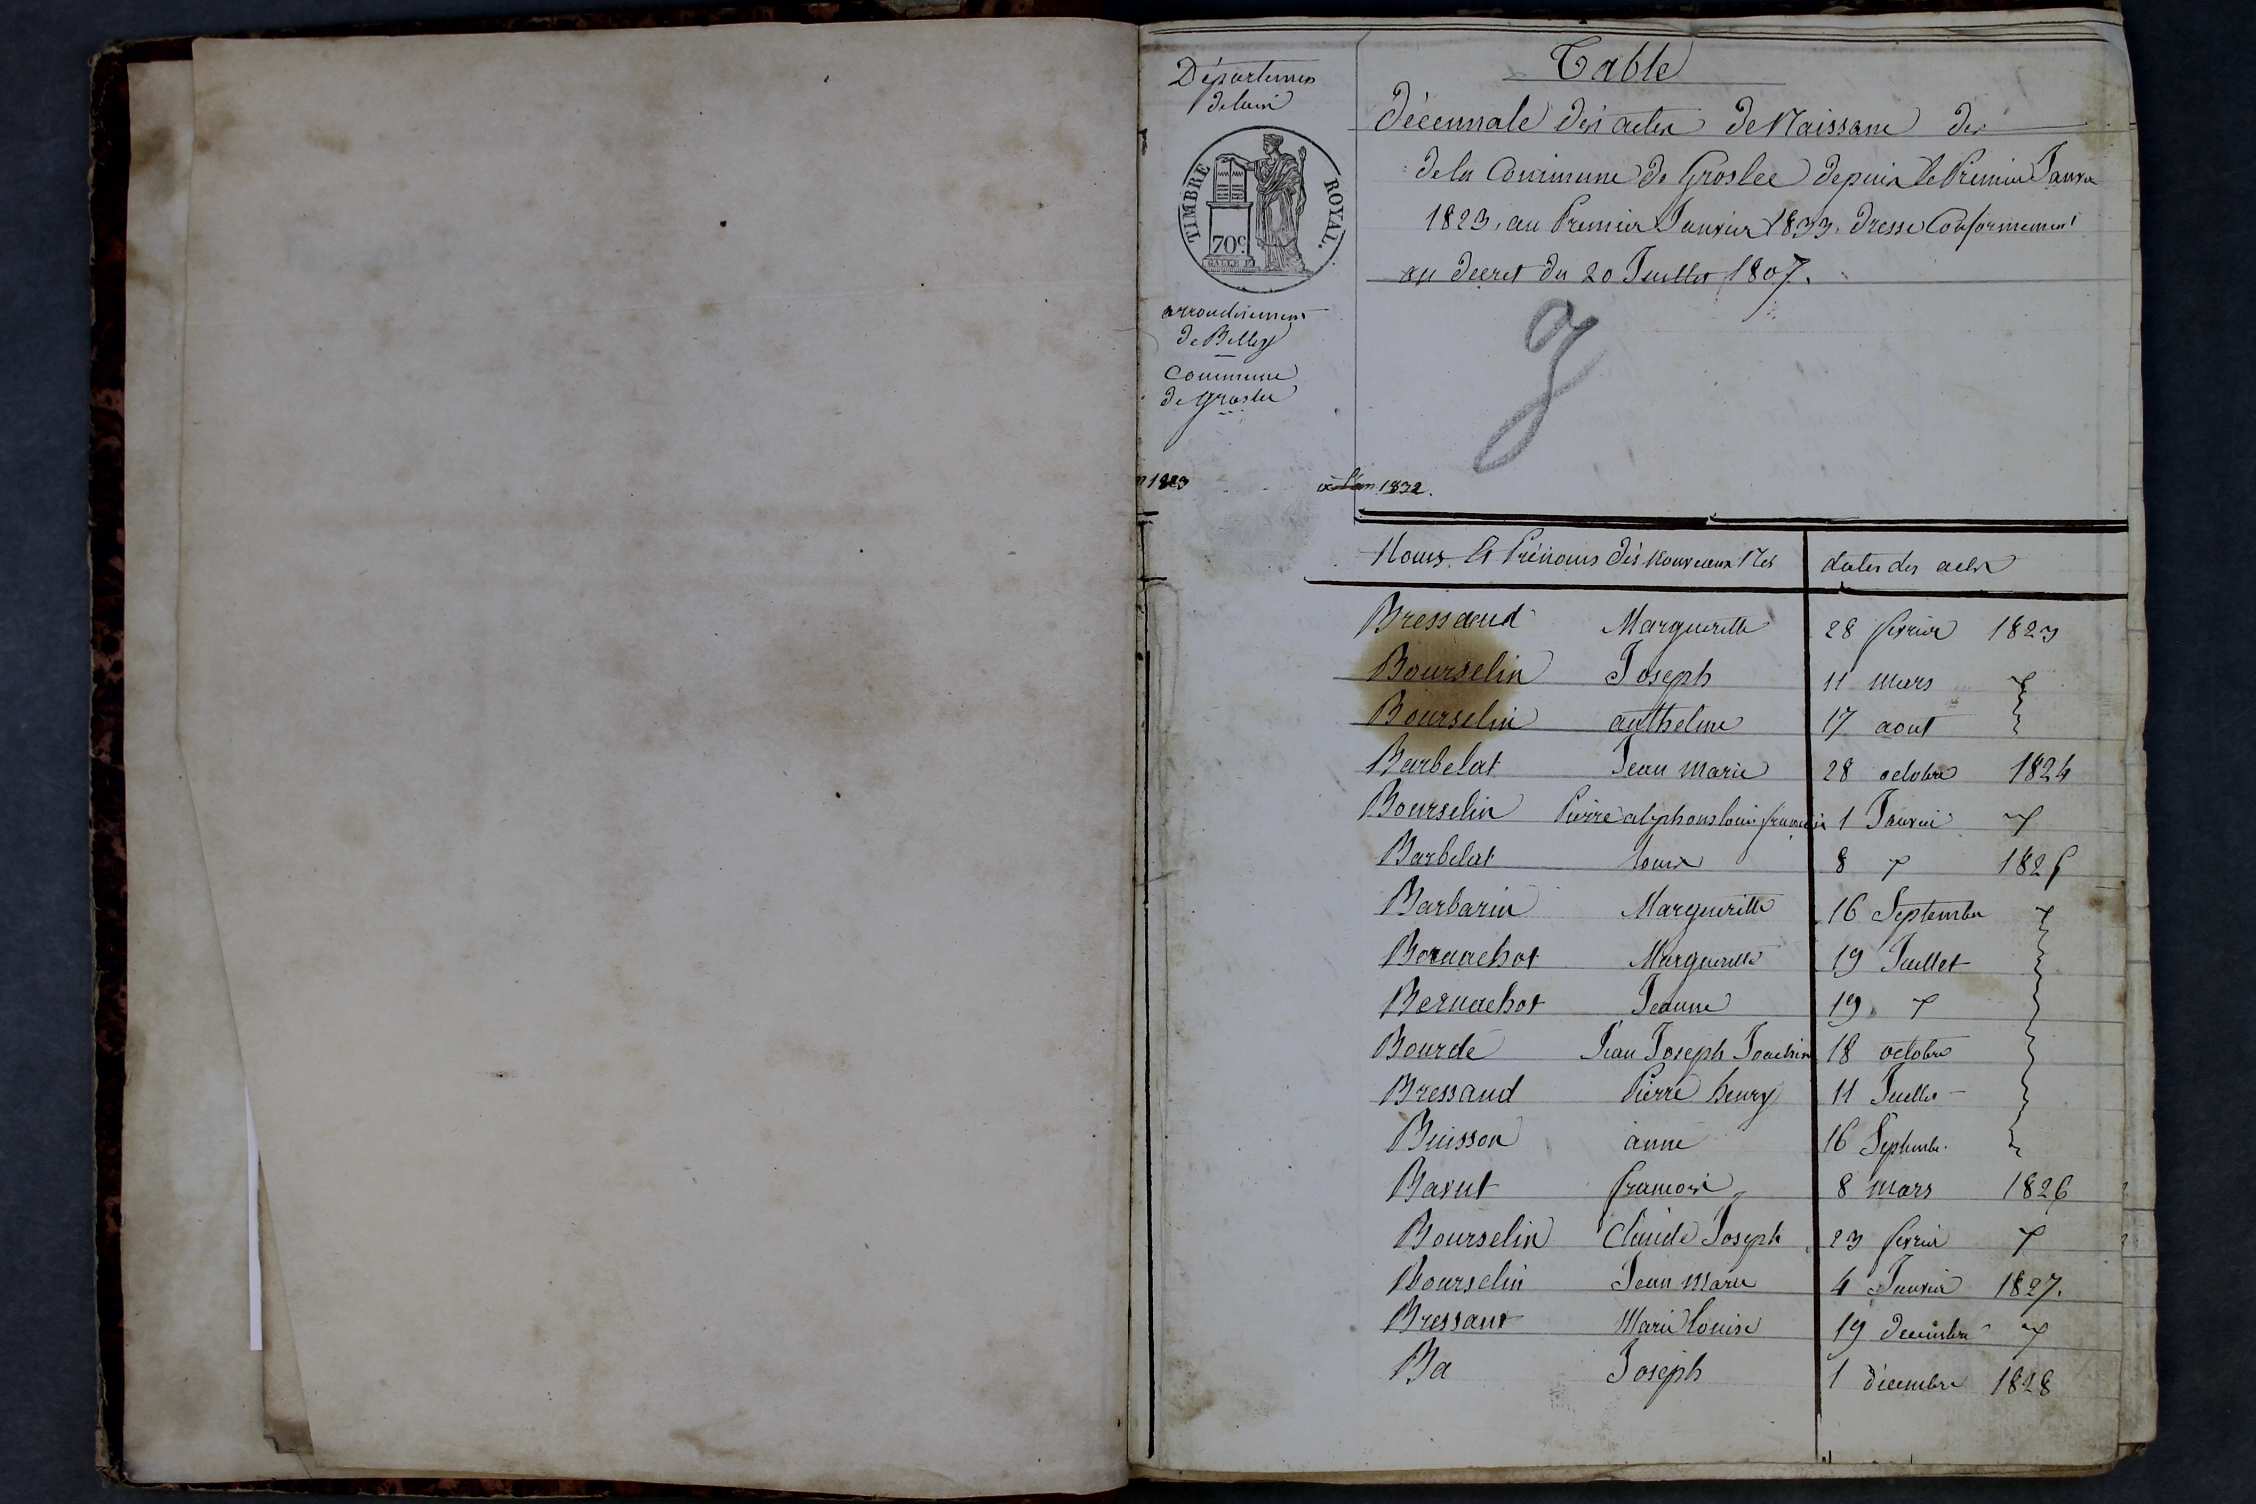 Département
de lain
TIMBRE ROYAL.
70c
arrondissement
de Belley
Commune
de Groslee
Table
décennale dés actes de Naissance des
de la Commune de Groslee depuis le Premier Janvier
1823, au Premier Janvier 1833, dressé Conformement
au decret du 20 Juillet 1807.
1823
1832.
Noms Et Prénoms dés nouveaux Nés dates des actes
Bressaud Margueritte 28 fevrier 1823
Bourselin Joseph 11 mars
Bourselin anthelme 17 aout
Barbelat Jean Marie 28 octobre 1824
Bourselin Pierre alphons louis francois 1 Janvier
Barbelat louis 8 1825
Barbarin Margueritte 16 Septembre
Bernachot Margueritte 19 Juillet
Bernachot Jeanne 19
Bourdé Jean Joseph Joachin 18 octobre
Bressaud Pierre henry 11 Juillet
Buisson anne 16 Septembre
Bavut francois 8 mars 1826
Bourselin Claude Joseph 23 fevrier
Bourselin Jean Marie 4 Janvier 1827.
Bressaut Marie louise 19 decembre
Ba Joseph 1 décembre 1828